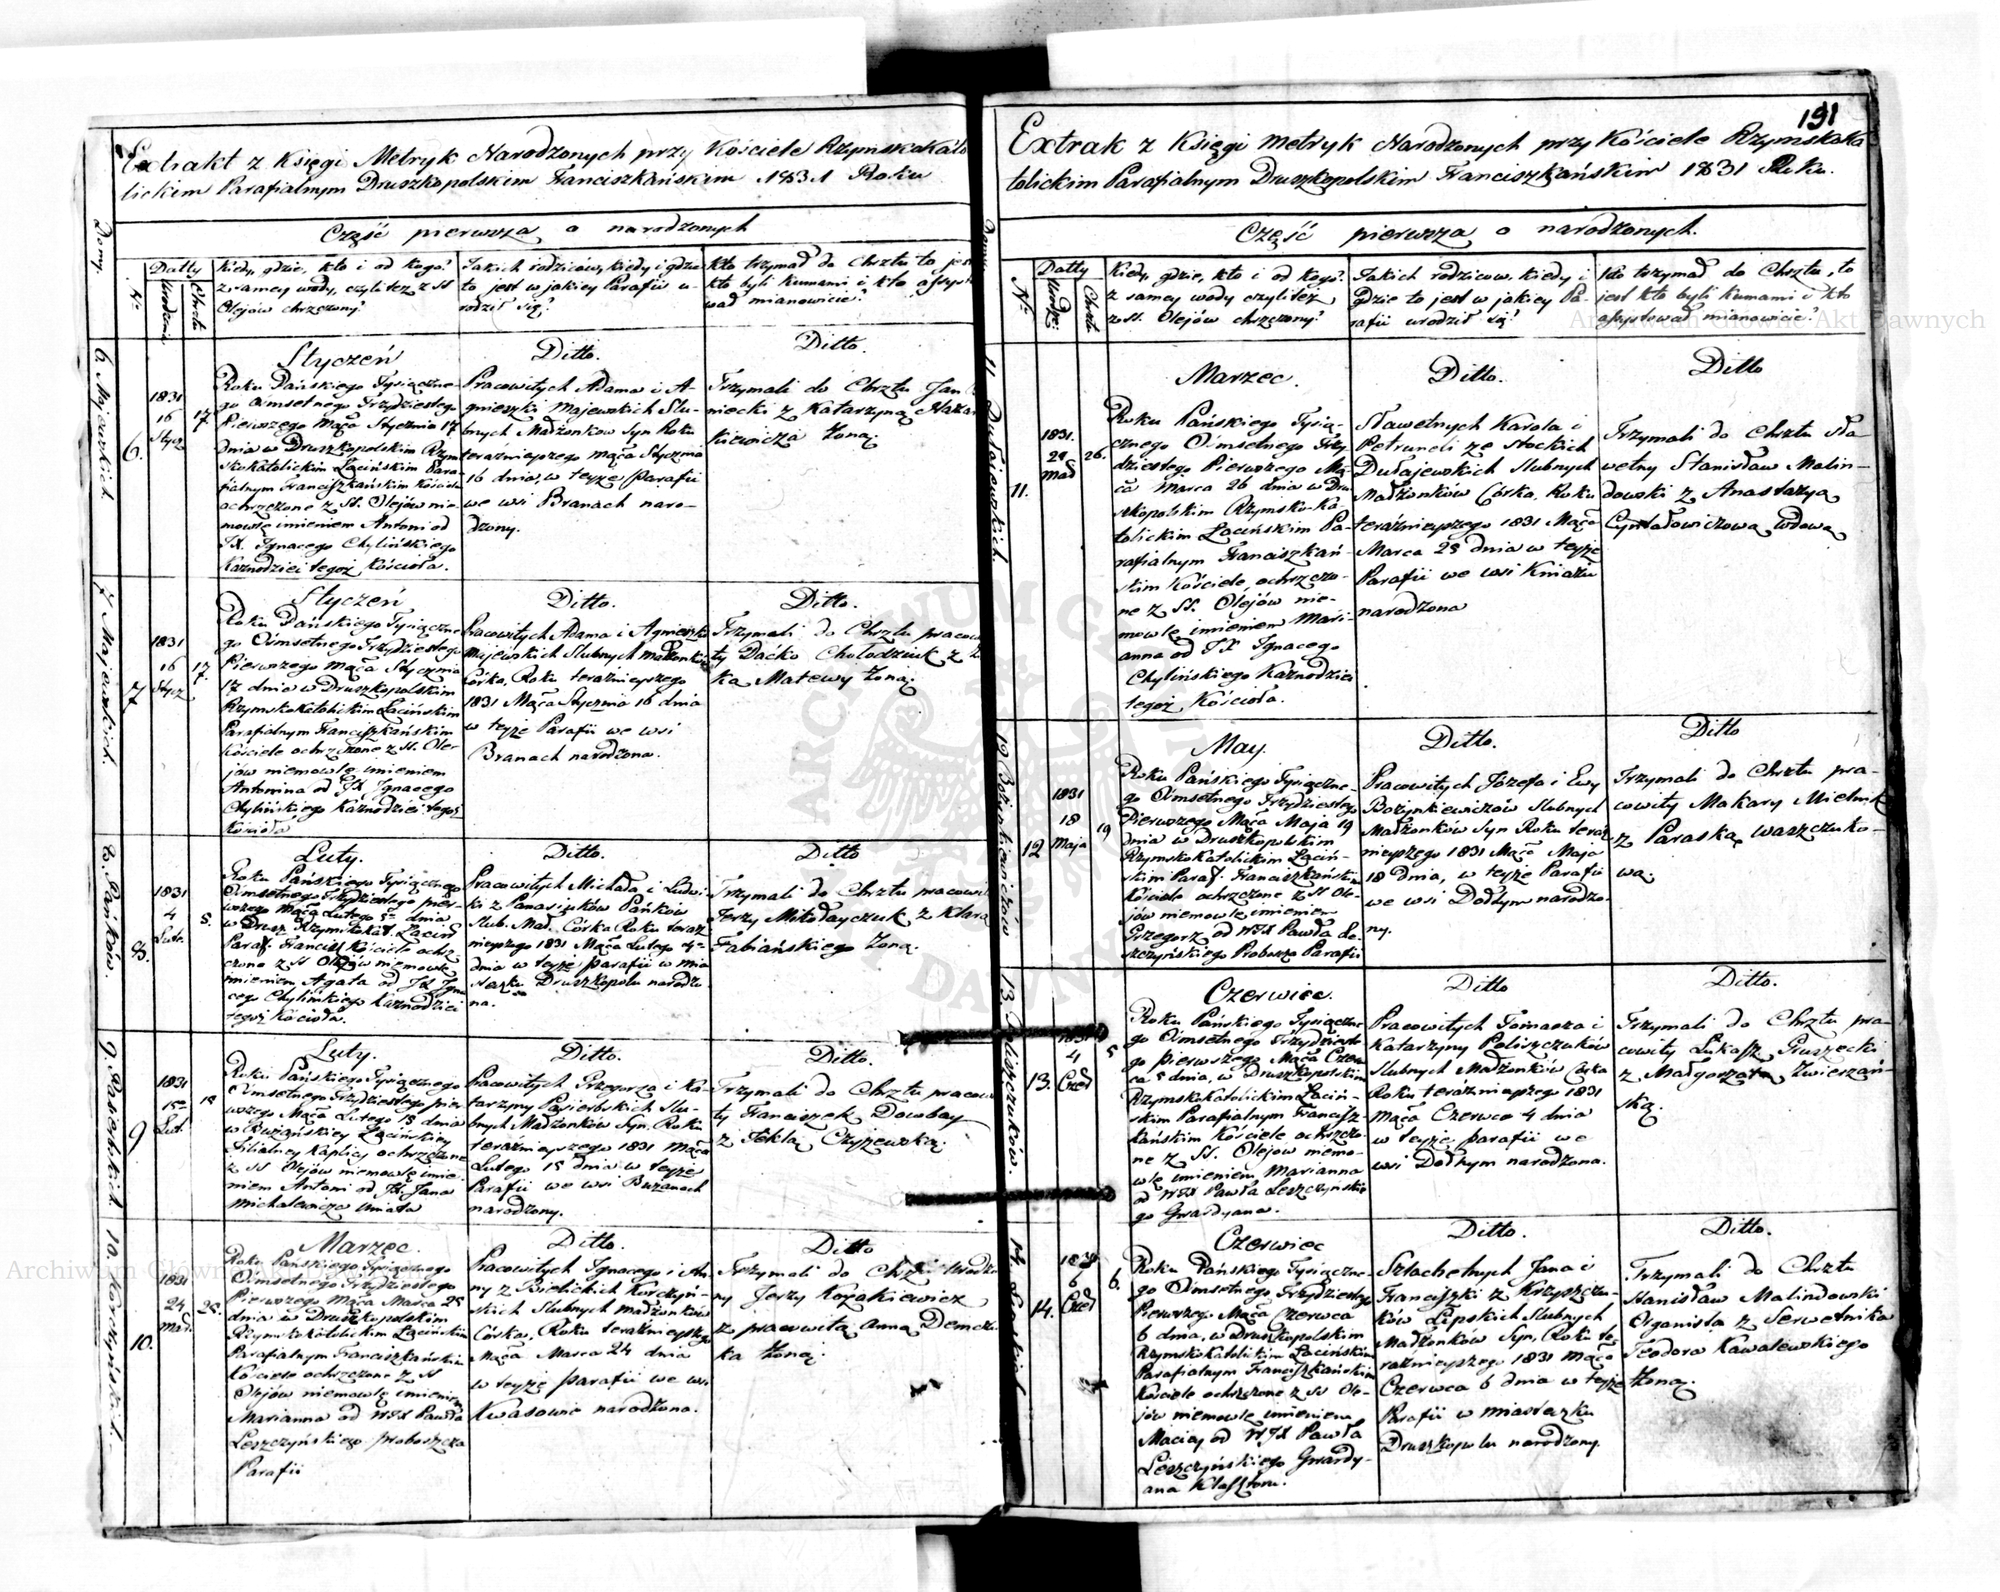 Extrakt z Księgi Metryk Narodzonych przy Kościele Rzymskokato
lickim Parafialnym Druszkopolskim Franciszkańskim 1831 Roku
Część pierwsza o narodzonych
Domy.
Nr.
Datty
Urodzenia
Chrztu
Kiedy, gdzie, kto i od kogo?
z samey wody, czyli tez z SS
Olejów chrzczony?
Jakich rodziców, kiedy i gdzie
to jest w jakiey Parafii u-
rodził się?
Kto trzymał do Chrztu to jest
kto byli kumami i kto assyst
wał mianowicie?
6. Majewskich
6.
1831
16
Stycz
17
Styczeń
Roku Pańskiego Tysiączne-
go Ośmsetnego Trzydziestego
Pierwszego Mąca Stycznia 17
dnia w Druszkopolskim Rzym
skokatolickim Łacińskim Para-
fialnym Franciszkańskim Kościele
ochrzczone z SS. Olejów nie-
mowle imieniem Antoni od
JX. Ignacego Chylińskiego
Kaznodziei tegoż Kościoła.
Ditto.
Pracowitych Adama i A-
gnieszki Majewskich Slu-
bnych Małżonkow Syn Roku
teraznieyszego Mąca Stycznia
16 dnia, w teyże Parafii
we wsi Branach naro-
dzony.
Ditto.
Trzymali do Chrztu Jan
niecki z Katarzyną Nazar
kiewicza Żoną
7. Majewskich
7
1831
16
Stycz
17
Styczeń
Roku Pańskiego Tysiączne
go Ośmsetnego Trzydziestego
Pierwszego Mąca Stycznia
17 dnia w Druszkopolskim
Rzymskokatolickim Łacińskim
Parafialnym Franciszkańskim
Kościele ochrzczone z SS. Ole-
jów niemowle imieniem
Antonina od JX Ignacego
Chylińskiego Kaznodziei tegoż
Kościoła
Ditto.
Pracowitych Adama i Agnieszki
Majewskich Slubnych Małżonków
Córka, Roku teraznieyszego
1831 Mąca Stycznia 16 dnia
w teyże Parafii we wsi
Branach narodzona.
Ditto.
Trzymali do Chrztu pracow
ty Daćko Chołodziuk z
ka Matewy Żoną
8. Pańków.
8.
1831
4
Lute.
5.
Luty.
Roku Pańskiego Tysiącznego
Ośmsetnego Trzydziestego pier-
wszego Mąca Lutego 5 dnia
w Drusz Rzymskokat. Łacin
Paraf. Francis. Kościele ochrz
czone z SS Olejów niemowle
imieniem Agata od JX Igna
cego Chylińskiego Kaznodziei
tegoż Kościoła.
Ditto.
Pracowitych Michała i Ludwi-
ki z Panasiuków Pańków
Slub. Mał. Córka Roku teraz
nieyszego 1831 Mąca Lutego 4
dnia w teyże Parafii w mia
steczku Druszkopolu narodzo
na.
Ditto
Trzymali do Chrztu pracowi
Jerzy Mikołayczuk z Klarą
Fabiańskiego Żoną.
9. Pasierbskich
9
1831
15
Lut.
15
Luty.
Roku Pańskiego Tysiącznego
Ośmsetnego Trzydziestego pier
wszego Mąca Lutego 15 dnia
w Bużańskiey Łacińskiey
Filialney Kaplicy ochrzczone
z SS Olejów niemowle imie-
niem Antoni od JX. Jana
Michalewicza Uniata
Ditto.
Pracowitych Grzegorza i Ka-
tarzyny Pasierbskich Slu-
bnych Małżonków Syn, Roku
teraznieyszego 1831 Mąca
Lutego 15 dnia w teyże
Parafii we wsi Bużanach
narodzony.
Ditto.
Trzymali do Chrztu pracow
ty Franciszek Dowbay
z Teklą Czyżewską.
10. Korczyńskich
10.
1831
24
Mar.
25.
Marzec.
Roku Pańskiego Tysiącznego
Ośmsetnego Trzydziestego
Pierwszego Mąca Marca 25
dnia w Druszkopolskim
Rzymskokatolickim Łacińskim
Parafialnym Franciszkańskim
Kościele ochrzczone z SS
Olejów niemowle imieniem
Marianna od WJX Pawła
Leszczyńskiego proboszcza
Parafii
Ditto.
Pracowitych Ignacego i An-
ny z Bielickich Korczyń-
skich Slubnych Małżonków
Córka, Roku teraznieyszego
Mąca Marca 24 dnia
w teyże Parafii we wsi
Kwasowie narodzona.
Ditto
Trzymali do Chrztu Urodzo
ny Jerzy Kozakiewicz
z pracowitą Anną Demczu
ka Żoną.
191
Extrak z Księgi Metryk Narodzonych przy Kościele Rzymskoka
tolickim Parafialnym Druszkopolskim Franciszkańskim 1831 Roku.
Część pierwsza o narodzonych.
Domy
Nr.
Datty
Urodze:
Chrztu
Kiedy, gdzie, kto i od kogo?
z samey wody czyli tez
z SS. Olejów chrzczony?
Jakich rodzicow, kiedy i
gdzie to jest w jakiey Pa-
rafii urodził się?
Kto trzymał do Chrztu, to
jest kto byli kumami i kto
assystował mianowicie?
11. Dułajewskich.
11.
1831.
25
Mar
26.
Marzec.
Roku Pańskiego Tysią-
cznego Ośmsetnego Trzy
dziestego Pierwszego Mą-
ca Marca 26 dnia w Dru
szkopolskim Rzymsko-Ka-
tolickim Łacińskim Pa-
rafialnym Franciszkań-
skim Kościele ochrzczo-
ne z SS. Olejów nie-
mowle imieniem Mari-
anna od JX Ignacego
Chylińskiego Kaznodziei
tegoż Kościoła.
Ditto.
Sławetnych Karola i
Petroneli ze Stockich
Dułajewskich Slubnych
Małżonków Córka, Roku
teraźnieyszego 1831 Mąca
Marca 25 dnia w teyże
Parafii we wsi Kniażu
narodzona
Ditto
Trzymali do Chrztu Sła-
wetny Stanisław Malin-
dowski z Anastazyą
Cymbałowiczową wdową
12 Bożynkiewiczów
12
1831
18
Maja
19
May.
Roku Pańskiego Tysiączne-
go Ośmsetnego Trzydziestego
Pierwszego Mąca Maja 19
dnia w Druszkopolskim
Rzymskokatolickim Łaciń-
skim Paraf. Franciszkańskim
Kościele ochrzczone z SS Ole-
jów niemowle imieniem
Grzegorz od WJX Pawła Le-
szczyńskiego Proboszcza Parafii
Ditto.
Pracowitych Józefa i Ewy
Bożynkiewiczów Slubnych
Małżonków Syn Roku teraz
nieyszego 1831 Mąca Maja
18 dnia, w teyże Parafii
we wsi Dołżym narodzo-
ny.
Ditto
Trzymali do Chrztu pra-
cowity Makary Mielnik
z Paraską Waszczuko-
wą.
13. Poliszczuków.
13.
1831
4
Czer
5
Czerwiec.
Roku Pańskiego Tysiączne
go Ośmsetnego Trzydzieste
go pierwszego Mąca Czerw
ca 5 dnia, w Druszkopolskim
Rzymskokatolickim Łaciń-
skim Parafialnym Francisz
kańskim Kościele ochrzczo-
ne z SS. Olejow niemo-
wle imieniem Marianna
od WJX Pawła Leszczyńskie
go Gwardyana.
Ditto
Pracowitych Tomasza i
Katarzyny Poliszczuków
Slubnych Małżonków Córka
Roku teraźnieyszego 1831
Mąca Czerwca 4 dnia
w teyże parafii we
wsi Dołżym narodzona.
Ditto.
Trzymali do Chrztu pra-
cowity Łukasz Gruszecki
z Małgorzatą Zwieszań-
ską.
14. Lipskich
14.
1831
6
Czer
6.
Czerwiec
Roku Pańskiego Tysiączne-
go Ośmsetnego Trzydziestego
Pierwszego Mąca Czerwca
6 dnia, w Druszkopolskim
Rzymskokatolickim Łacińskim
Parafialnym Franciszkańskim
Kościele ochrzczone z SS Ole-
jów niemowle imieniem
Maciey od WJX Pawła
Leszczyńskiego Gwardy-
ana Klasztoru.
Ditto.
Szlachetnych Jana i
Franciszki z Krzyszczu-
ków Lipskich Slubnych
Małżonków Syn, Roku te-
raznieyszego 1831 Mąca
Czerwca 6 dnia w teyże
Parafii w miasteczku
Druszkopolu narodzony.
Ditto.
Trzymali do Chrztu
Stanisław Malindowski
Organista z Serwetnika
Teodora Kowalewskiego
Żoną.
Archiwum Główne Akt Dawnych